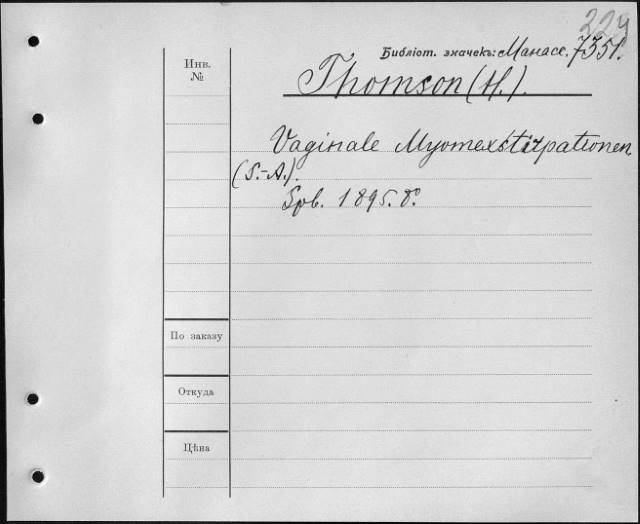 224
Библіот. значекъ: Манасс. 7351.
Инв.
№
Thomson (H.).
Vaginale Myomexstirpationen
(S.-A.).
Spb. 1895. 8°.
По заказу
Откуда
Цѣна